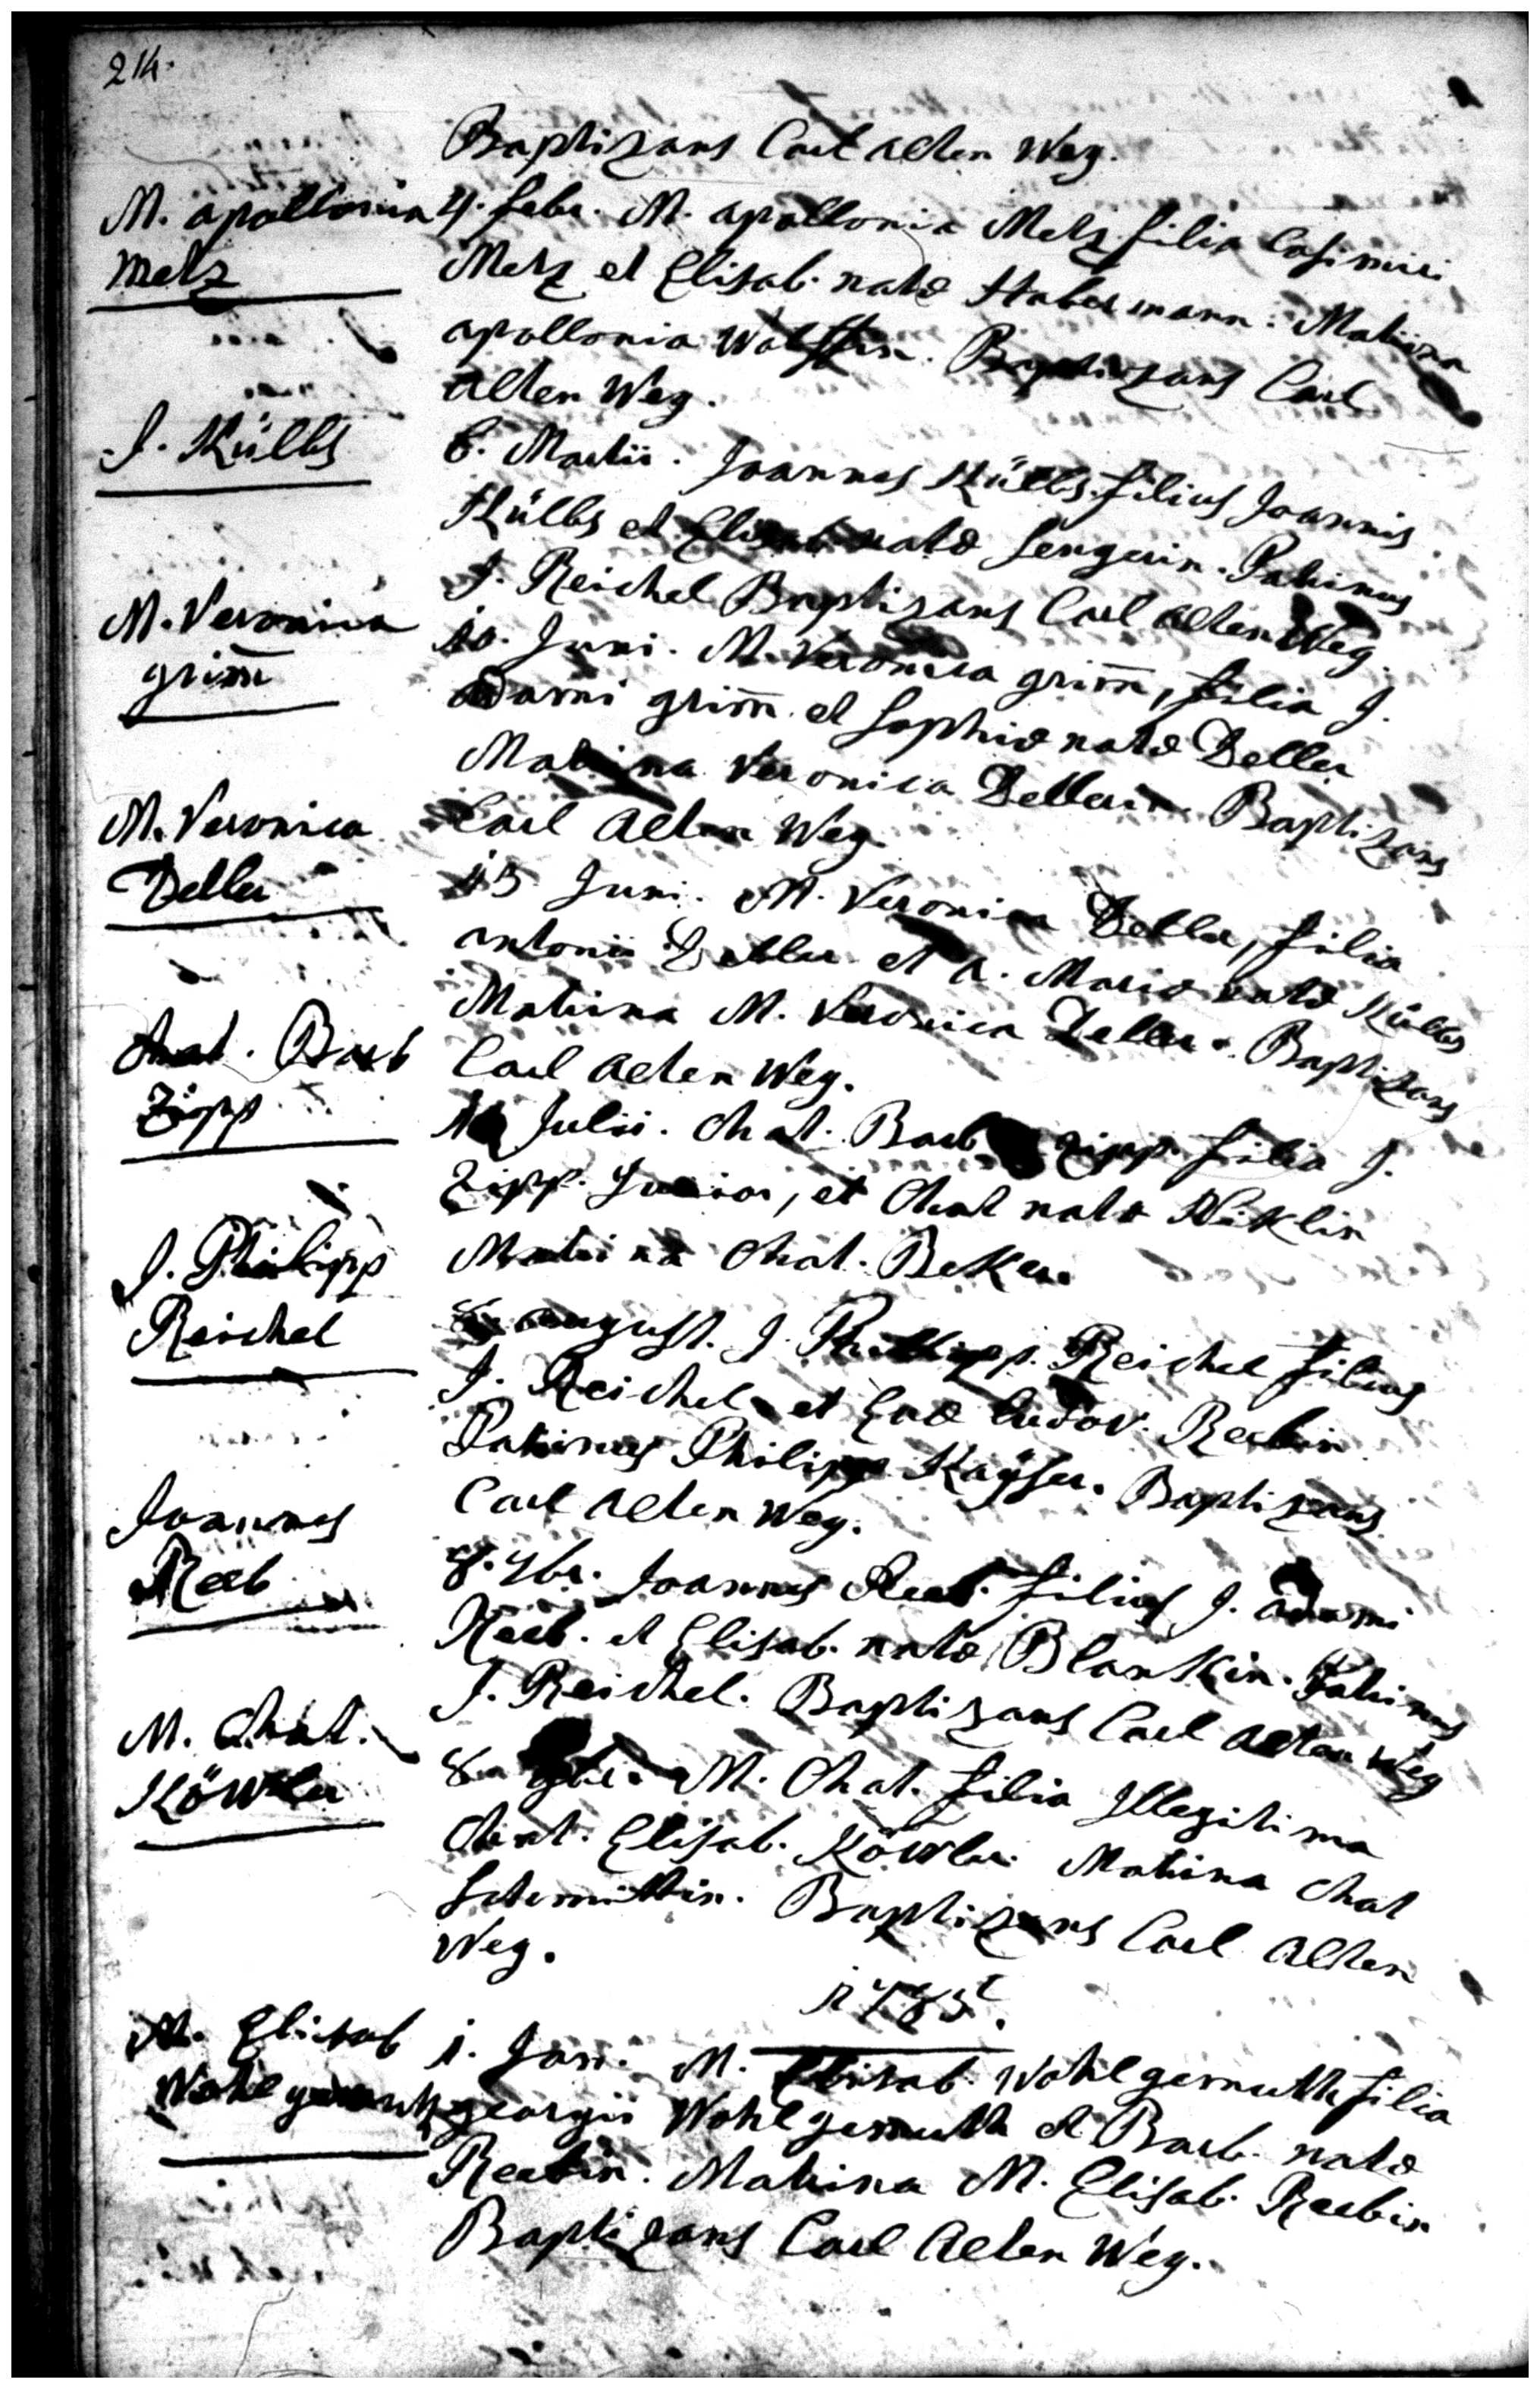 214.
Baptizans Carl Alten Weg.
M. apollonia
Metz
4. febr. M. apollonia Metz filia Casimiri
Metz et Elisab. natæ Habermann. Matrina
apollonia Wolffin. Baptizans Carl
Alten Weg.
J. Külbs
6. Martii. Joannes Külbs filius Joannis
Külbs et Elisab. natæ Sengerin. Patrinus
J. Reichel Baptizans Carl Alten Weg.
M. Veronica
grim̄
10. Juni. M. Veronica grim̄, filia J.
Adami grim̄. et Sophiæ natæ Deller
Matrina Veronica Dellerin. Baptizans
Carl Alten Weg.
M. Veronica
Deller
13. Juni. M. Veronica Deller, filia
antonii Deller et A. Mariæ natæ Külbs
Matrina M. Veronica Deller. Baptizans
Carl Alten Weg.
Chat. Barb
Zipp
Julii. Chat. Barb Zipp filia J.
Zipp. Junior, et Chat natæ
Matrina Chat. Beker.
J. Philipp
Reichel
8. august. J. Philipp. Reichel filius
J. Reichel et Evæ Ludov. Reebin
Patrinus Philipp Kaÿser. Baptizans
Carl Alten Weg.
Joannes
Reeb
8. 7br. Joannes Reeb filius J. Adami
Reeb. et Elisab. natæ Blankin. Patrinus
J. Reichel. Baptizans Carl Alten Weg
M. Chat.
Köwler
8. M. Chat. filia Illegitima
Chat. Elisab. Köwler. Matrina Chat
Schmittin. Baptizans Carl Alten
Weg.
1785.
M. Elisab
Wohlgemuth
1. Jan. M. Elisab. Wohlgemuth filia
georgii Wohlgemuth et Barb. natæ
Reebin. Matrina M. Elisab. Reebin
Baptizans Carl Alten Weg.